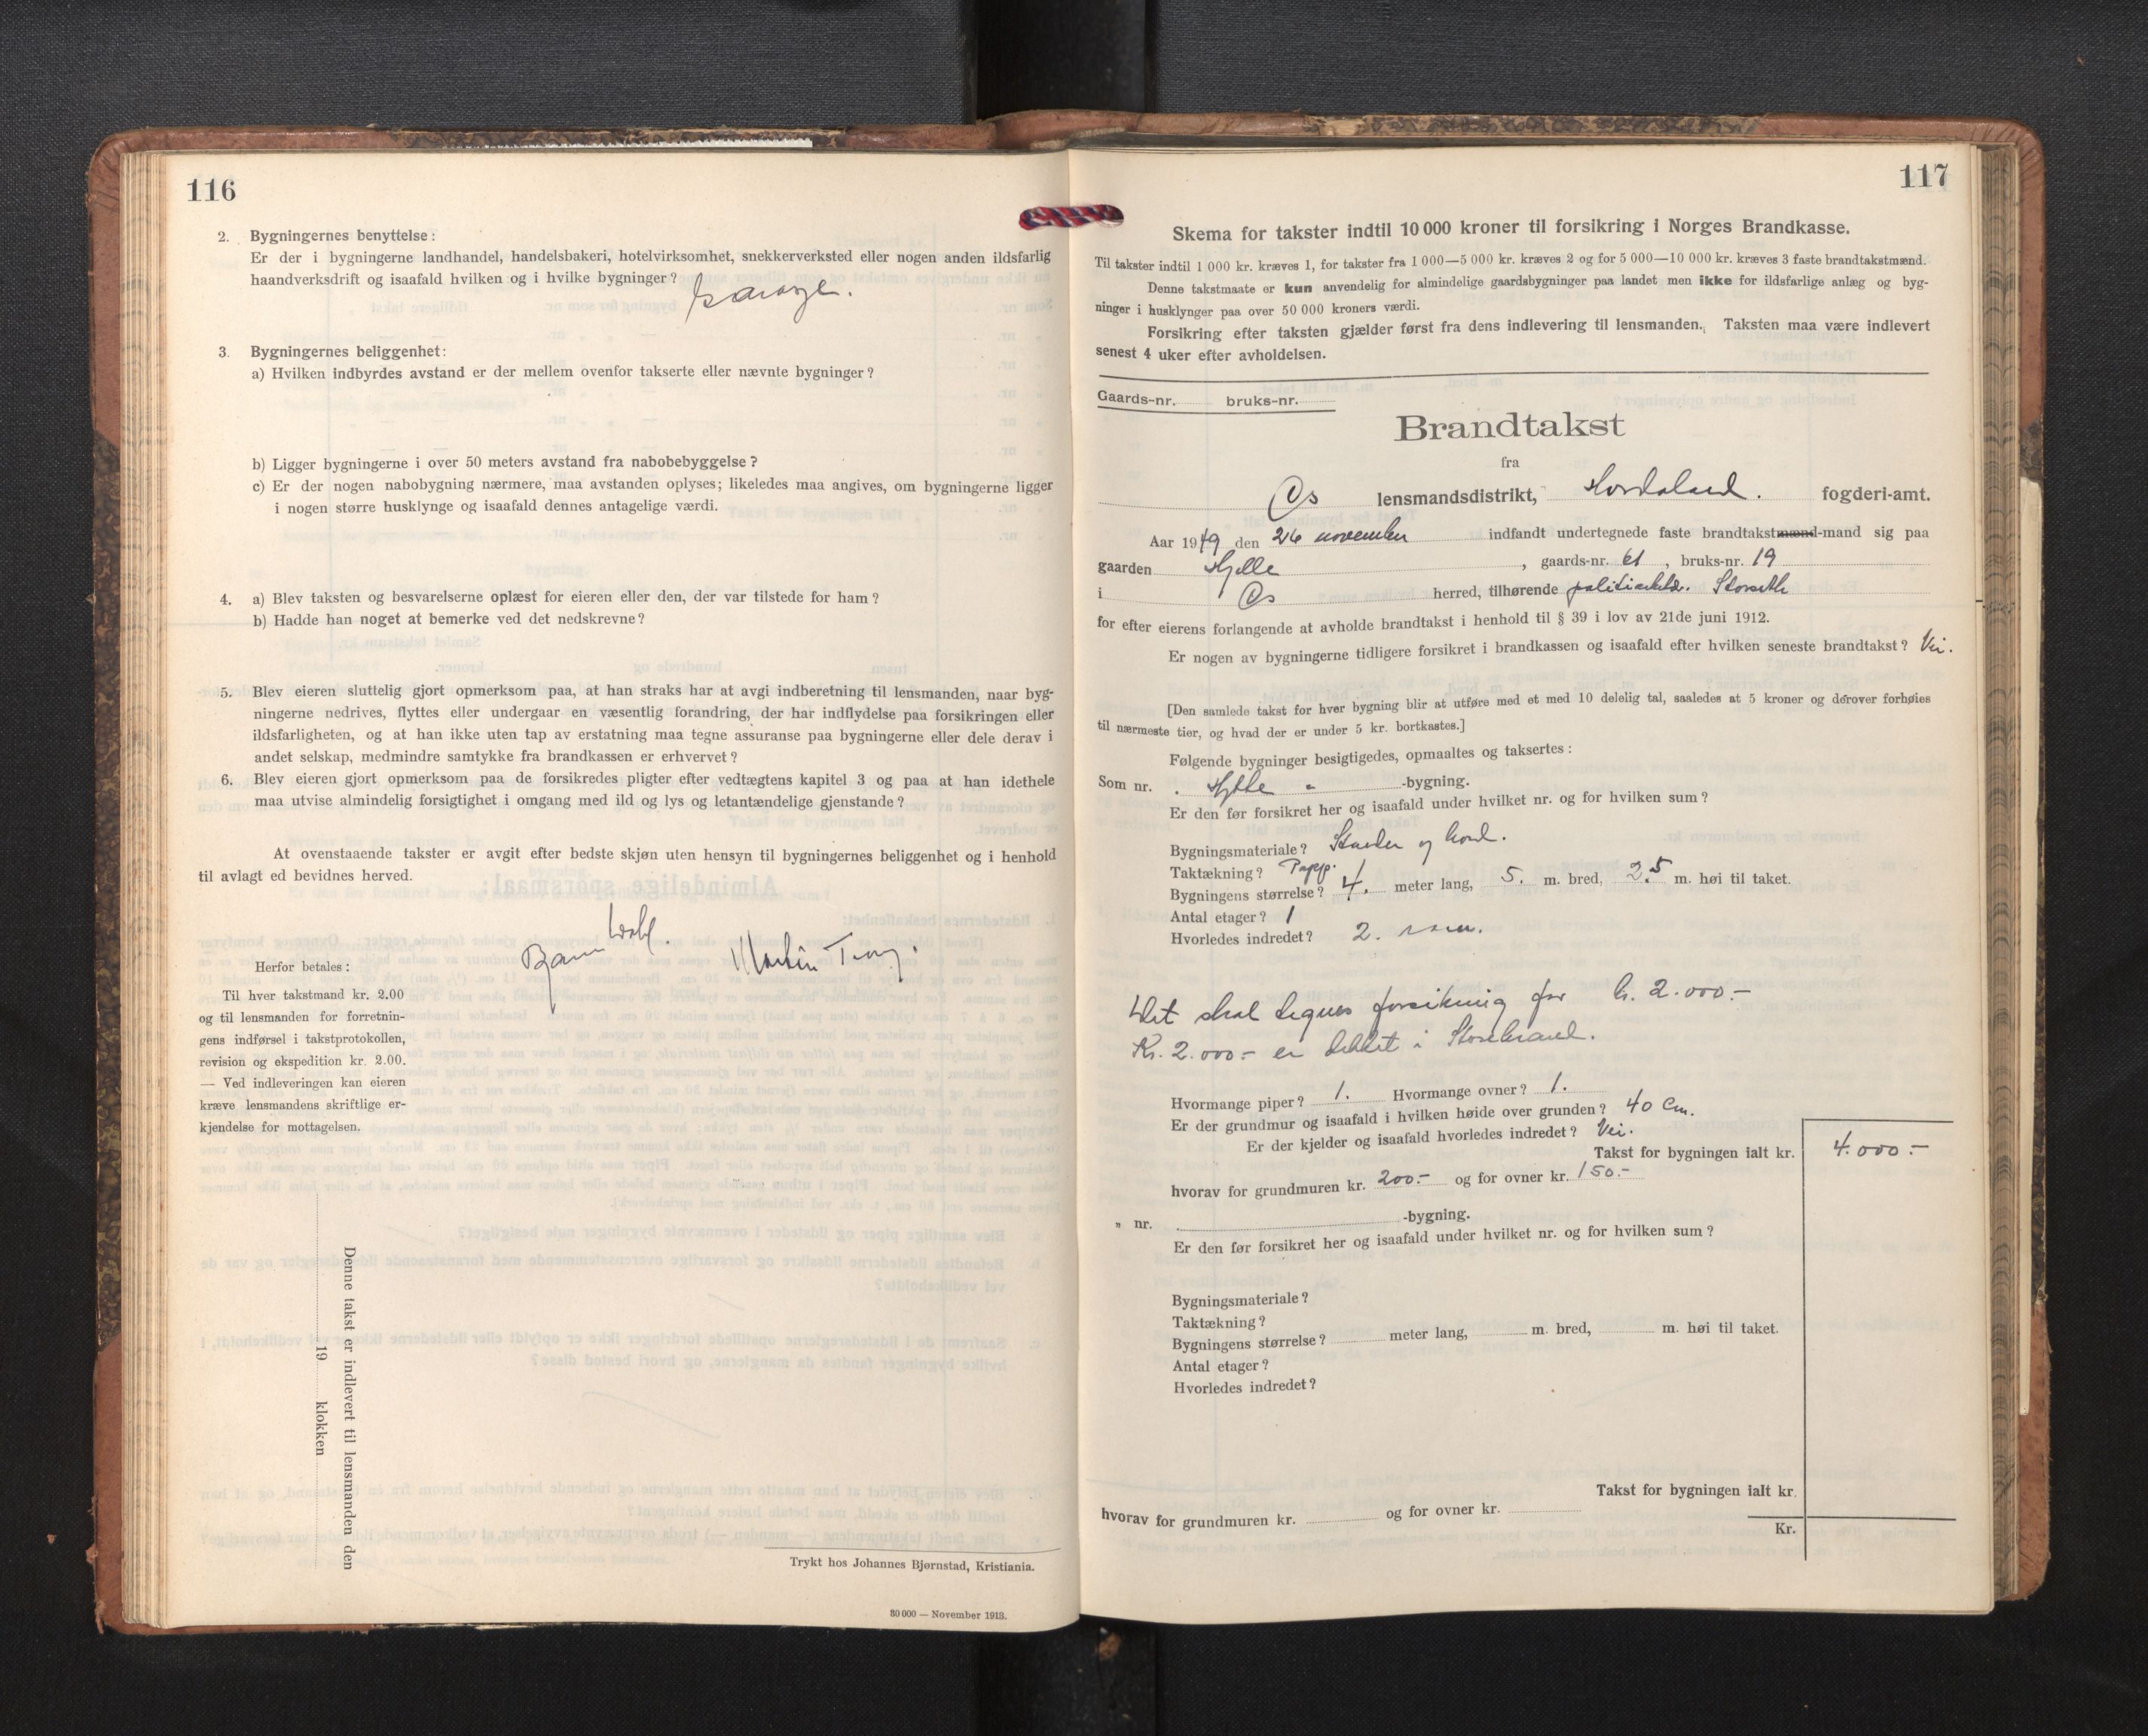 116
2. Bygningernes benyttelse:
Er der i bygningerne landhandel, handelsbakeri, hotelvirksomhet, snekkerverksted eller nogen anden ildsfarlig
haandverksdrift og isaafald hvilken og i hvilke bygninger? Garage.
3. Bygningernes beliggenhet:
a) Hvilken indbyrdes avstand er der mellem ovenfor takserte eller nævnte bygninger?
b) Ligger bygningerne i over 50 meters avstand fra nabobebyggelse?
c) Er der nogen nabobygning nærmere, maa avstanden oplyses; likeledes maa angives, om bygningerne ligger
i nogen større husklynge og isaafald dennes antagelige værdi.
4. a) Blev taksten og besvarelserne oplæst for eieren eller den, der var tilstede for ham?
b) Hadde han noget at bemerke ved det nedskrevne?
5. Blev eieren sluttelig gjort opmerksom paa, at han straks har at avgi indberetning til lensmanden, naar byg-
ningerne nedrives, flyttes eller undergaar en væsentlig forandring, der har indflydelse paa forsikringen eller
ildsfarligheten, og at han ikke uten tap av erstatning maa tegne assuranse paa bygningerne eller dele derav i
andet selskap, medmindre samtykke fra brandkassen er erhvervet?
6. Blev eieren gjort opmerksom paa de forsikredes pligter efter vedtægtens kapitel 3 og paa at han idethele
maa utvise almindelig forsigtighet i omgang med ild og lys og letantændelige gjenstande?
At ovenstaaende takster er avgit efter bedste skjøn uten hensyn til bygningernes beliggenhet og i henhold
til avlagt ed bevidnes herved.
Martin
Herfor betales:
Til hver takstmand kr. 2.00
og til lensmanden for forretnin-
gens indførsel i takstprotokollen,
revision og ekspedition kr. 2.00.
— Ved indleveringen kan eieren
kræve lensmandens skriftlige er-
kjendelse for mottagelsen.
Denne takst er indlevert til lensmanden den
19 klokken
Trykt hos Johannes Bjørnstad, Kristiania.
30 000 — November 1918.
117
Skema for takster indtil 10 000 kroner til forsikring i Norges Brandkasse.
Til takster indtil 1 000 kr. kræves 1, for takster fra 1 000—5 000 kr. kræves 2 og for 5 000—10 000 kr. kræves 3 faste brandtakstmænd.
Denne takstmaate er kun anvendelig for almindelige gaardsbygninger paa landet men ikke for ildsfarlige anlæg og byg-
ninger i husklynger paa over 50 000 kroners værdi.
Forsikring efter taksten gjælder først fra dens indlevering til lensmanden. Taksten maa være indlevert
senest 4 uker efter avholdelsen.
Gaards-nr. bruks-nr.
Brandtakst
fra
Os lensmandsdistrikt, Hordaland. fogderi-amt.
Aar 1949 den 26 november indfandt undertegnede faste brandtakstmænd-mand sig paa
gaarden Hjelle, gaards-nr. 61, bruks-nr. 19
i Os herred, tilhørende Storseth
for efter eierens forlangende at avholde brandtakst i henhold til § 39 i lov av 21de juni 1912.
Er nogen av bygningerne tidligere forsikret i brandkassen og isaafald efter hvilken seneste brandtakst? Nei.
[Den samlede takst for hver bygning blir at utføre med et med 10 delelig tal, saaledes at 5 kroner og derover forhøies
til nærmeste tier, og hvad der er under 5 kr. bortkastes.]
Følgende bygninger besigtigedes, opmaaltes og taksertes:
Som nr. Hytte -bygning.
Er den før forsikret her og isaafald under hvilket nr. og for hvilken sum?
Bygningsmateriale? Stender og bord.
Taktækning? Papp.
Bygningens størrelse? 4. meter lang, 5. m. bred, 2.5 m. høi til taket.
Antal etager? 1
Hvorledes indredet? 2. rom.
Det skal tegnes forsikring for kr. 2.000.-
Kr. 2.000.- er dekket i Storebrand.
Hvormange piper? 1. Hvormange ovner? 1.
Er der grundmur og isaafald i hvilken høide over grunden? 40 cm.
Er der kjelder og isaafald hvorledes indredet? Nei.
Takst for bygningen ialt kr. 4.000.-
hvorav for grundmuren kr. 200.- og for ovner kr. 150.-
„ nr. -bygning.
Er den før forsikret her og isaafald under hvilket nr. og for hvilken sum?
Bygningsmateriale?
Taktækning?
Bygningens størrelse? meter lang, m. bred, m. høi til taket.
Antal etager?
Hvorledes indredet?
Takst for bygningen ialt kr.
hvorav for grundmuren kr. og for ovner kr.
Kr.